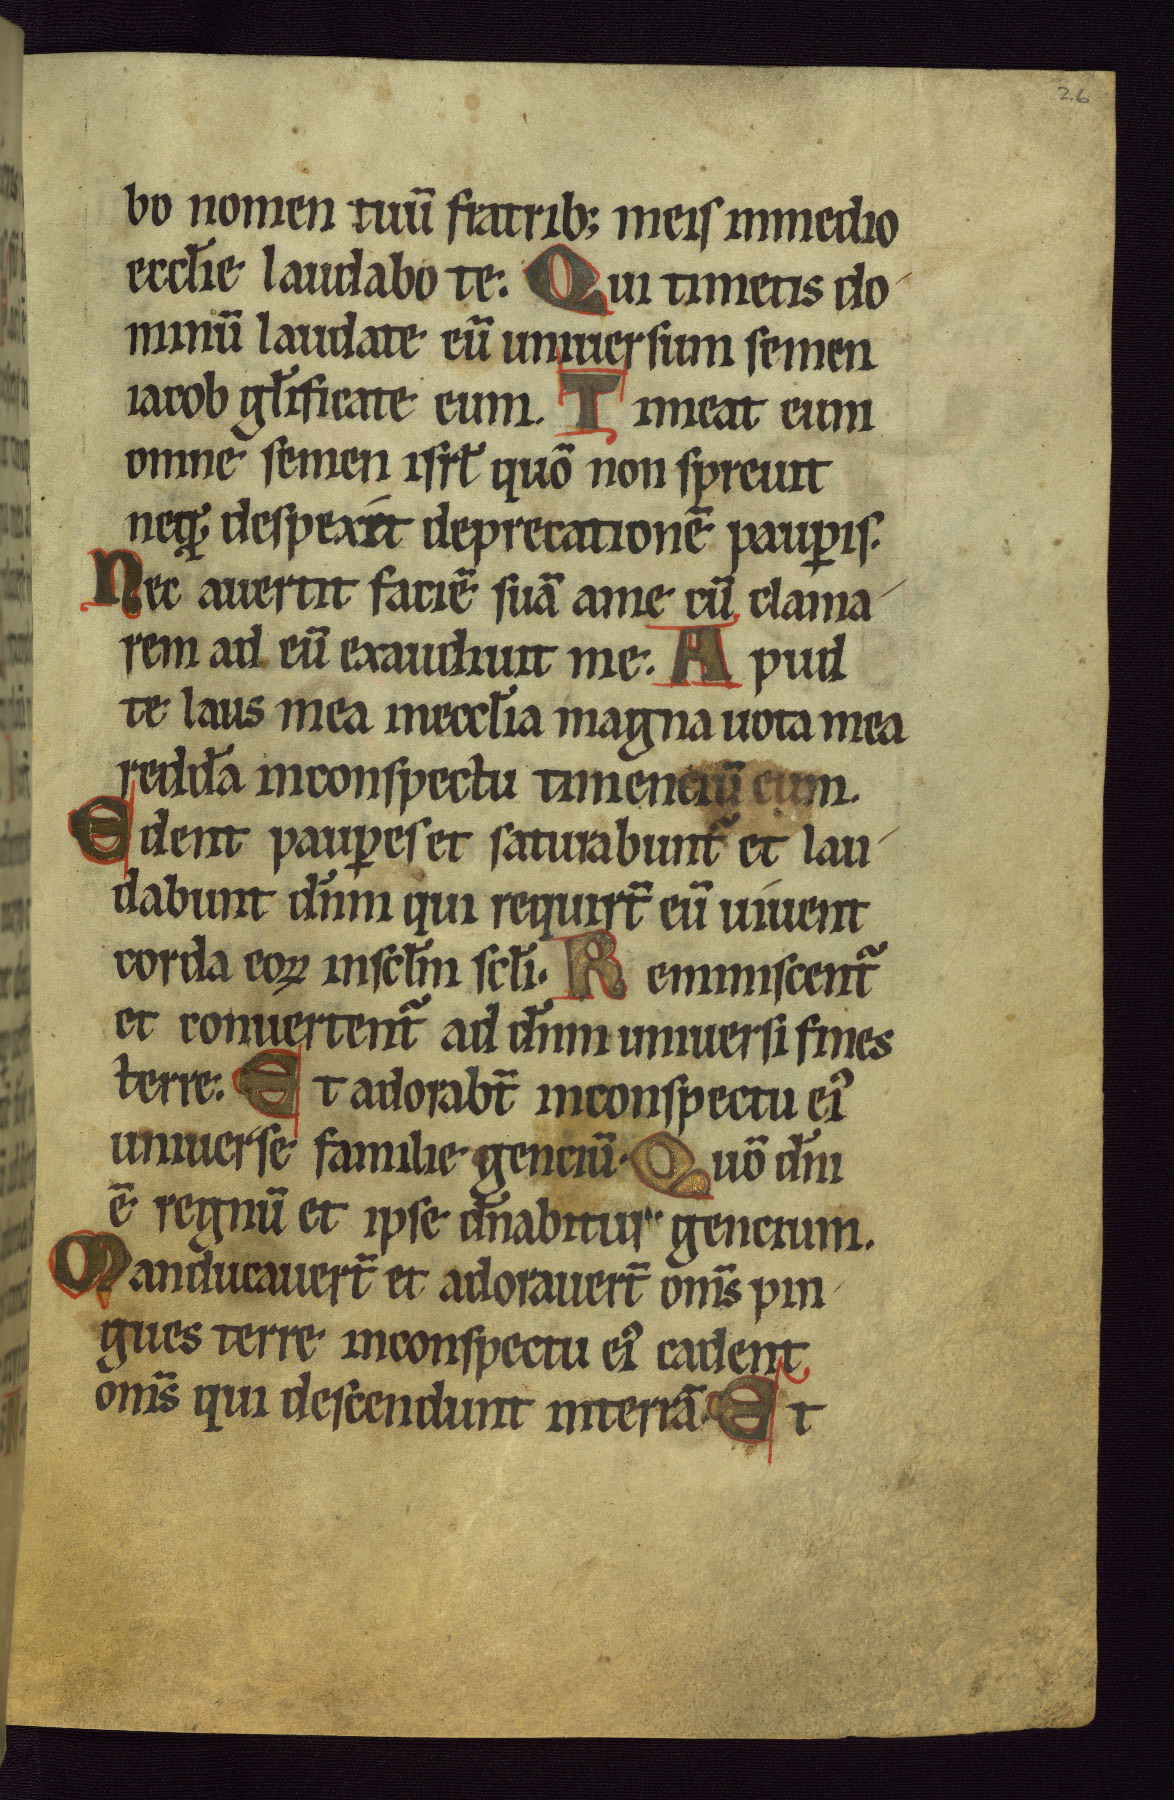 26
bo nomen tuū fratrib; meis inmedio
eccl̄ie laudabo te. Qui timetis do
minū laudate eū uniuersum semen
iacob gl̄ificate eum. Timeat eum
omne semen isrl̄ quō non spreuit
neq; despexit deprecationē paup̲is.
Nec auertit faciē suā ame cū clama
rem ad eū exaudiuit me. Apud
te laus mea ineccl̄ia magna uota mea
redd̄a inconspectu timenciū eum.
Edent paup̲es et saturabunt̄ et lau
dabunt dn̄m qui requirt̄ eū uiuent
corda eoꝝ inscl̄m scl̄i. Reminiscent̄
et conuertent̄ ad dn̄m uniuersi fines
terre. Et adorabt̄ inconspectu ei᾿
uniuerse familie genciū. Quō dn̄i
ē regnū et ipse dn̄abitur gencium.
Manducauert̄ et adorauert̄ om̄s pin
gues terre inconspectu ei᾿ cadent
om̄s qui descendunt interrā. Et